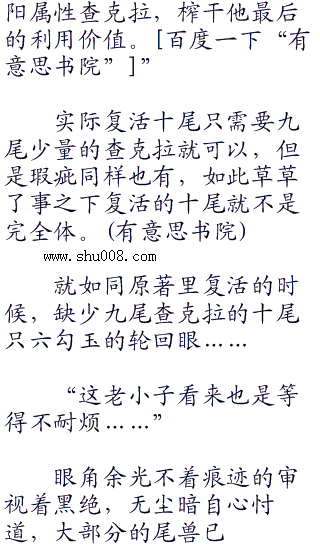 阳属性查克拉，榨干他最后
的利用价值。[百度一下“有
意思书院”]”
实际复活十尾只需要九
尾少量的查克拉就可以，但
是瑕疵同样也有，如此草草
了事之下复活的十尾就不是
完全体。(有意思书院)
www.shu008.com
就如同原著里复活的时
候，缺少九尾查克拉的十尾
只六勾玉的轮回眼……
“这老小子看来也是等
得不耐烦……”
眼角余光不着痕迹的审
视着黑绝，无尘暗自心忖
道，大部分的尾兽已